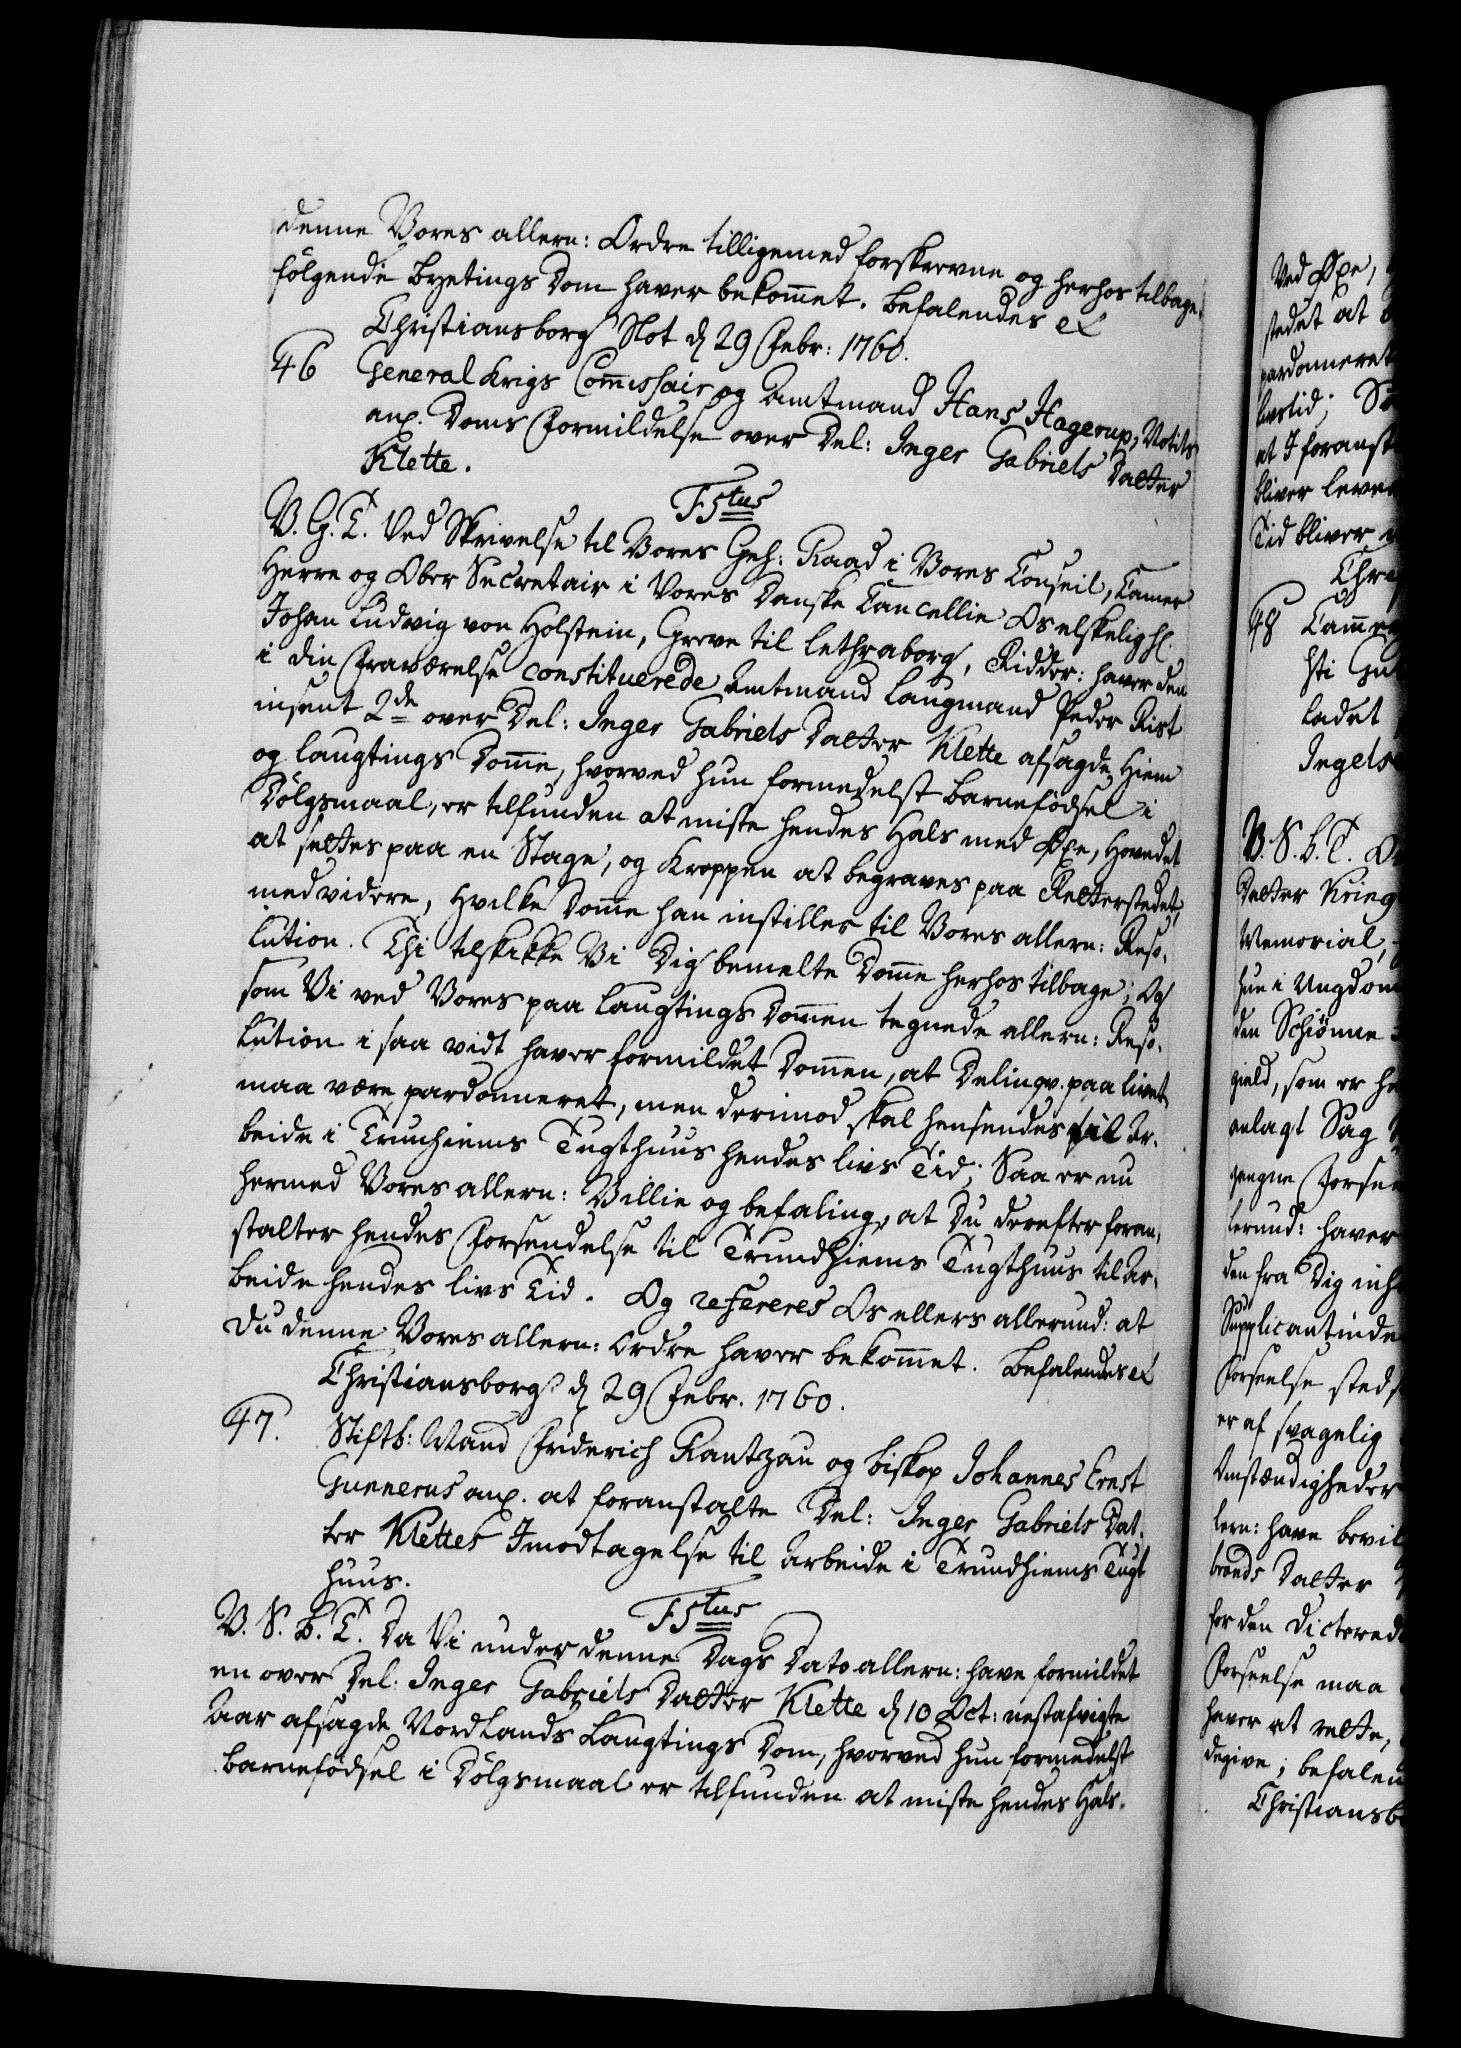 denne Vores allern: Ordre tilligemed forskrevne og herhos tilbage,
følgende byetings Dom haver bekommet. Befalendes etc
Christiansborg Slot d 29 Febr: 1760.
46 General Krigs Commissair og Amtmand Hans Hagerup, Notits
anl. Doms Formildelse over Del: Inger Gabriels Datter
Klette.
F5tus
V. G. T. Ved Skrivelse til Vores Geh: Raad i Vores Conseil, Camer
Herre og Ober Secretair i Vores Danske Cancellie Os elskelig Hr.
Johan Ludvig von Holstein, Greve til Lethraborg, Ridder: haver den
i din Fraværelse constituerede Amtmand Laugmand Peder Rist
insent 2de over Del: Inger Gabriels Datter Klette afsagde Hiem
og Laugtings Domme, hvorved hun formedelst Barnefødsel i
Dølgsmaal, er tilfunden at miste hendes Hals med Øxe, Hovedet
at settes paa en Stage, og Kroppen at begraves paa Retterstedet,
med videre, hvilke Domme han instiller til Vores allern: Reso,
lution. Thi tilskikke Vi Dig bemelte Domme herhos tilbage; Og
som Vi ved Vores paa Laugtings Dommen tegnede allern: Reso,
lution i saa vidt haver formildet Dommen, at Delinqv. paa livet
maa være pardonneret, men derimod skal hensendes til Ar,
beide i Trunhiems Tugthuus hendes livs Tid; Saa er nu
hermed Vores allern: Villie og befaling, at Du derefter foran,
stalter hendes Forsendelse til Trundhiems Tugthuus til Ar,
beide hendes livs Tid. Og refereres Os ellers allerund: at
Du denne Vores allern: Ordre haver bekommet. Befalendes etc
Christiansborg d 29 Febr. 1760.
47. Stiftb: Mand Friderich Rantzau og biskop Johannes Ernst
Gunnerus anl. at foranstalte Del: Inger Gabriels Dat,
ter Klettes Imodtagelse til Arbeide i Trundhiems Tugt
huus.
F5tus
V. S. B. T. Da Vi under denne Dags Dato allern: have formildet
en over Del: Inger Gabriels Datter Klette d 10 Oct: nestafvigte
Aar afsagde Nordlands Laugtings Dom, hvorved hun formedelst
Barnefødsel i Dølgsmaal er tilfunden at miste hendes Hals.
Ved Øxe,
stedet at
pardonneret
livstid;
at I foranst
bliver lever
Tid bliver
Chri
48 Camme
Hti
ladet
Ingels
V. S. B. T.
Datter Krieg
Memorial,
hun i Ungdom
den Schiønne
gield, som er
anlagt Sag
gangne Forsee
lerund: haver
den fra Dig
Supplicantinde
Forseelse steds
er af svagelig
Omstændigheder
lern: have bevil
brands Datter
for den Dictered
Forseelse maa
haver at rette,
degive; befalen
Christiansb